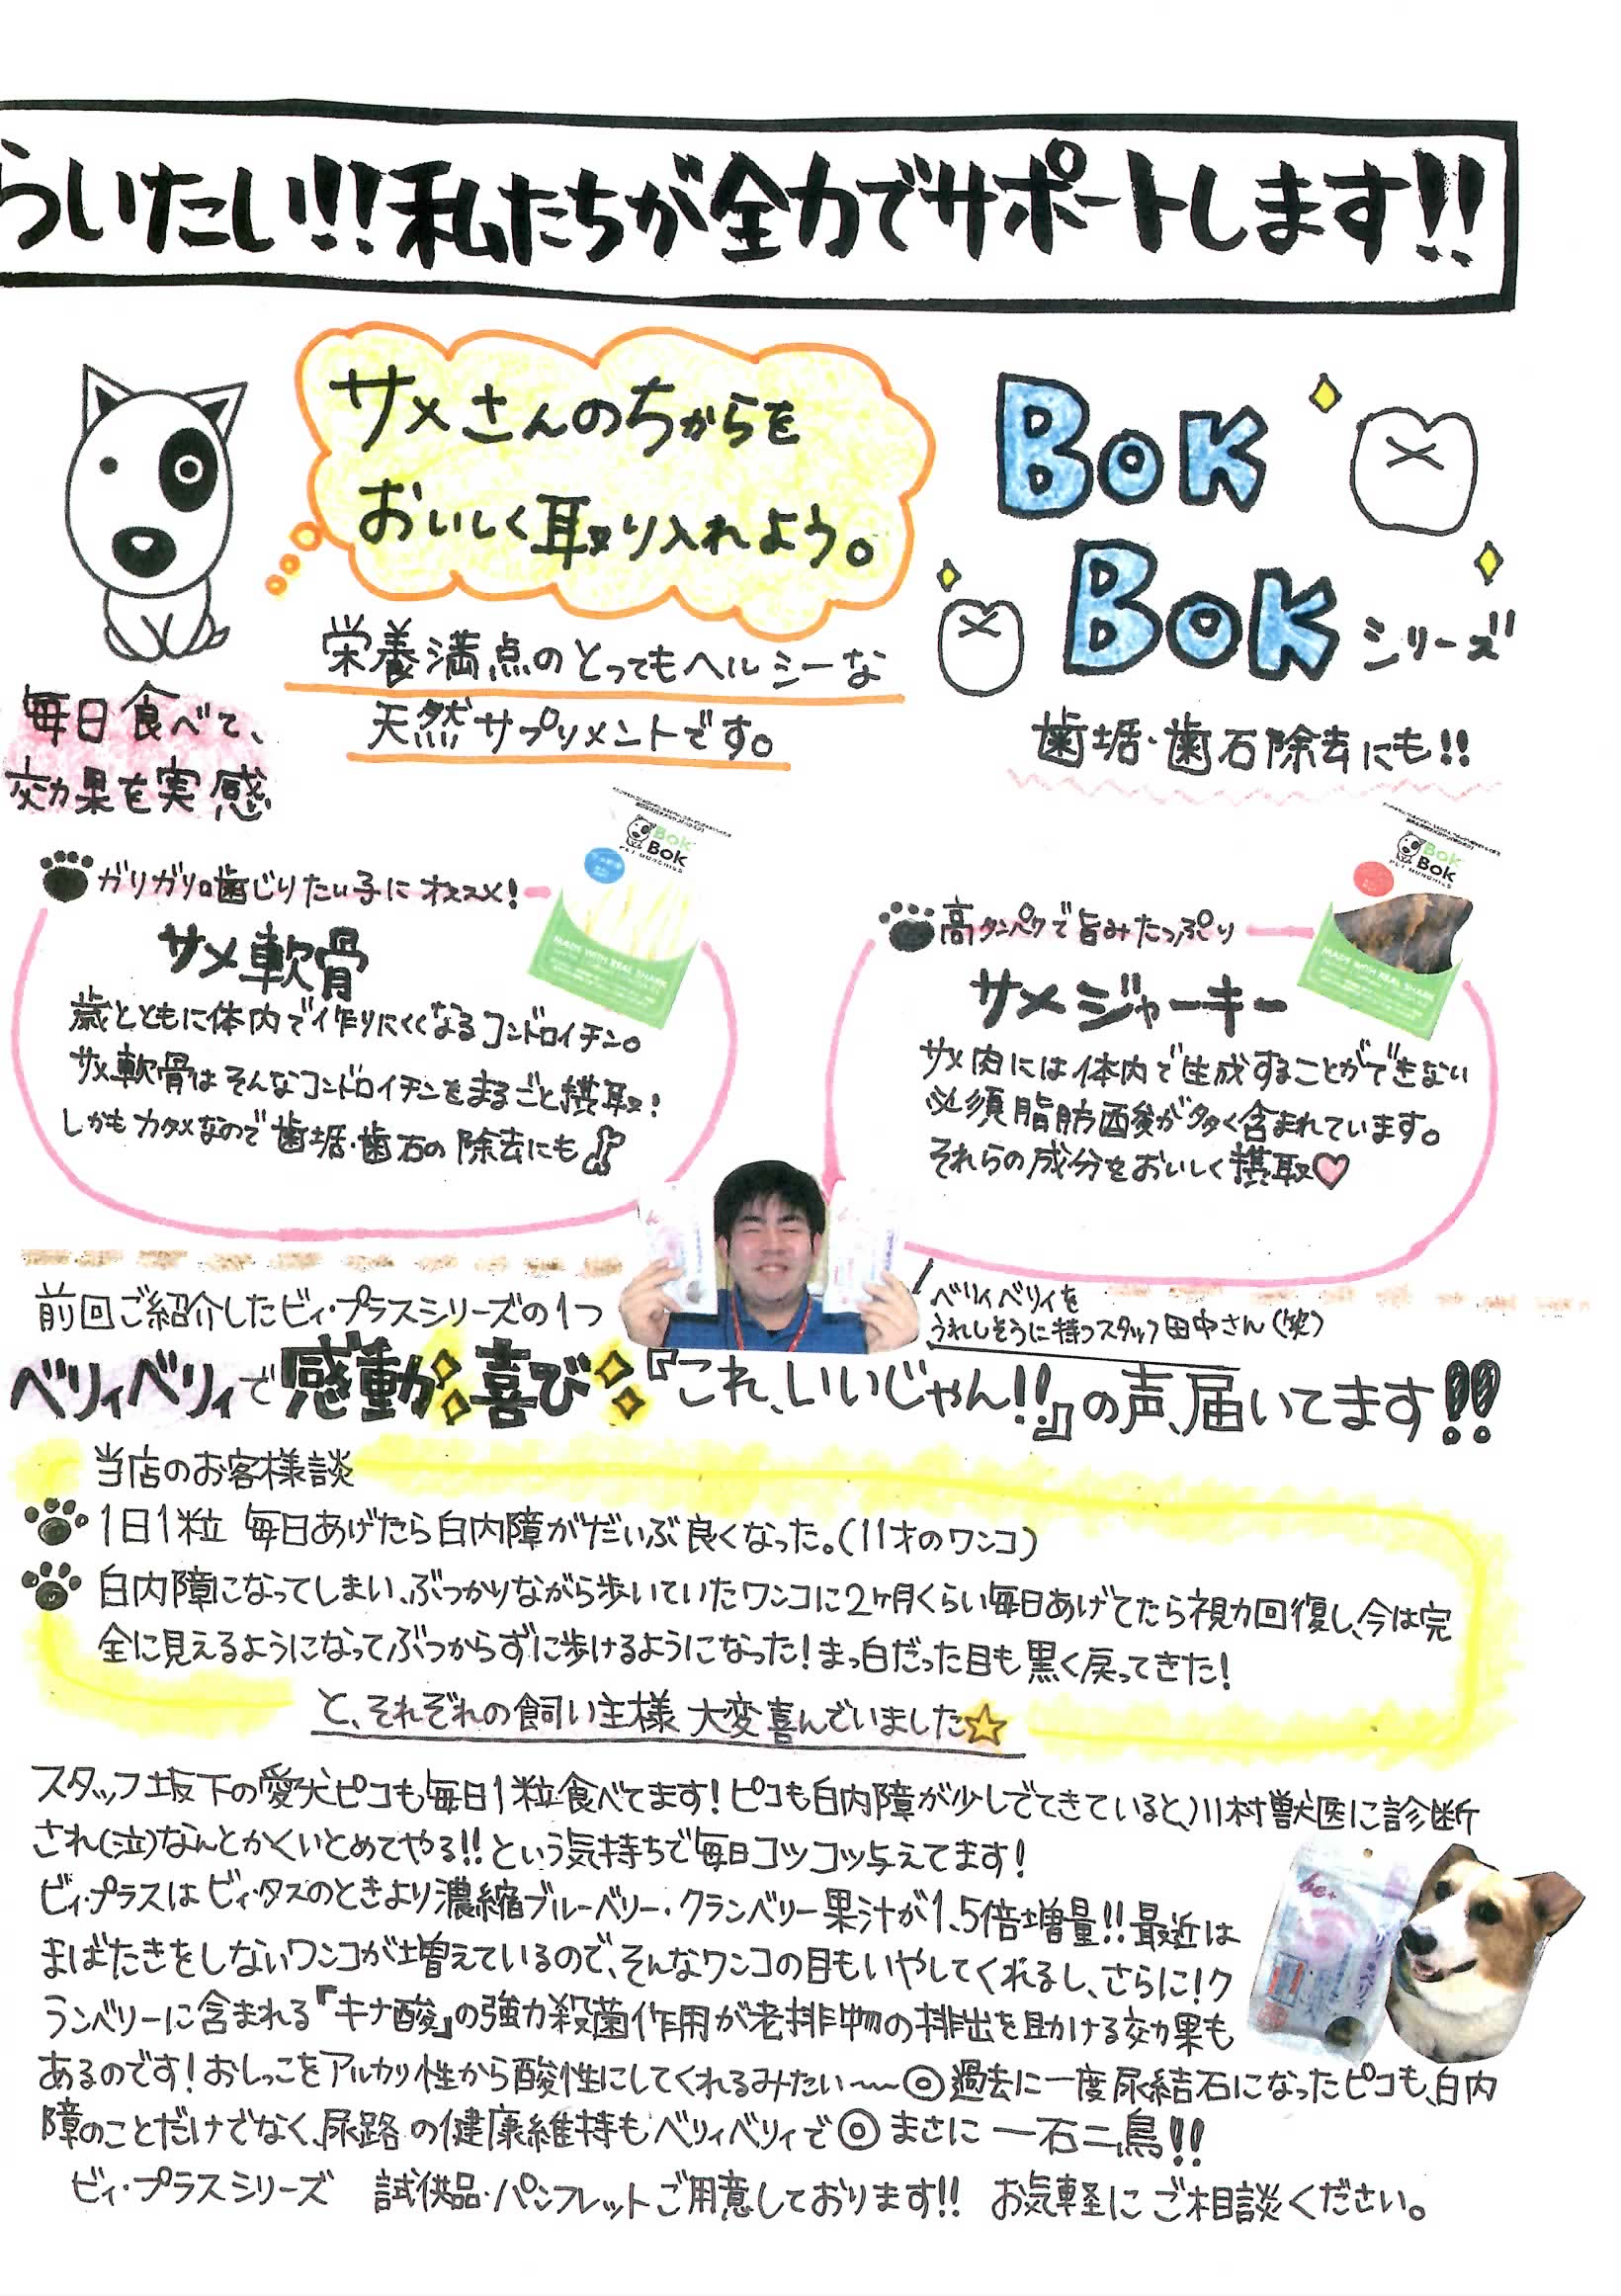 らいたい!!私たちが全力でサポートします!!
サメさんのちからを
おいしく取り入れよう。
BOK
BOKシリーズ
栄養満点のとってもヘルシーな
天然サプリメントです。
毎日食べて、
効果を実感
歯垢・歯石除去にも!!
BOK
BOK
PET MUNCHIES
MADE WITH REAL SHARK
ガリガリ歯じりたい子にオススメ!
サメ軟骨
歳とともに体内で作りにくくなるコンドロイチン。
サメ軟骨はそんなコンドロイチンをまるごと摂取!
しかもカタメなので歯垢・歯石の除去にも
BOK
BOK
PET MUNCHIES
MADE WITH REAL SHARK
高タンパクで旨みたっぷり
サメジャーキー
サメ肉には体内で生成することができない
必須脂肪酸が多く含まれています。
それらの成分をおいしく摂取♡
ベリィベリィを
うれしそうに持つスタッフ田中さん(笑)
前回ご紹介したビィ・プラスシリーズの1つ
ベリィベリィで感動喜び『これ、いいじゃん!!』の声、届いてます!!
当店のお客様談
1日1粒 毎日あげたら白内障がだいぶ良くなった。(11才のワンコ)
白内障になってしまい、ぶつかりながら歩いていたワンコに2ヶ月くらい毎日あげてたら視力回復し、今は完
全に見えるようになってぶつからずに歩けるようになった!まっ白だった目も黒く戻ってきた!
と、それぞれの飼い主様 大変喜んでいました☆
スタッフ坂下の愛犬ピコも毎日1粒食べてます!ピコも白内障が少しでてきていると、川村獣医に診断
され(泣)なんとかくいとめてやる!!という気持ちで毎日コツコツ与えてます!
ビィ・プラスはビィ・タスのときより濃縮ブルーベリー・クランベリー果汁が1.5倍増量!!最近は
まばたきをしないワンコが増えているので、そんなワンコの目もいやしてくれるし、さらに!ク
ランベリーに含まれる『キナ酸』の強力殺菌作用が老排物の排出を助ける効果も
あるのです!おしっこをアルカリ性から酸性にしてくれるみたい〜〜◎過去に一度尿結石になったピコも、白内
障のことだけでなく、尿路の健康維持もベリィベリィで◎まさに一石二鳥!!
ビィ・プラスシリーズ 試供品・パンフレットご用意しております!! お気軽にご相談ください。
be+